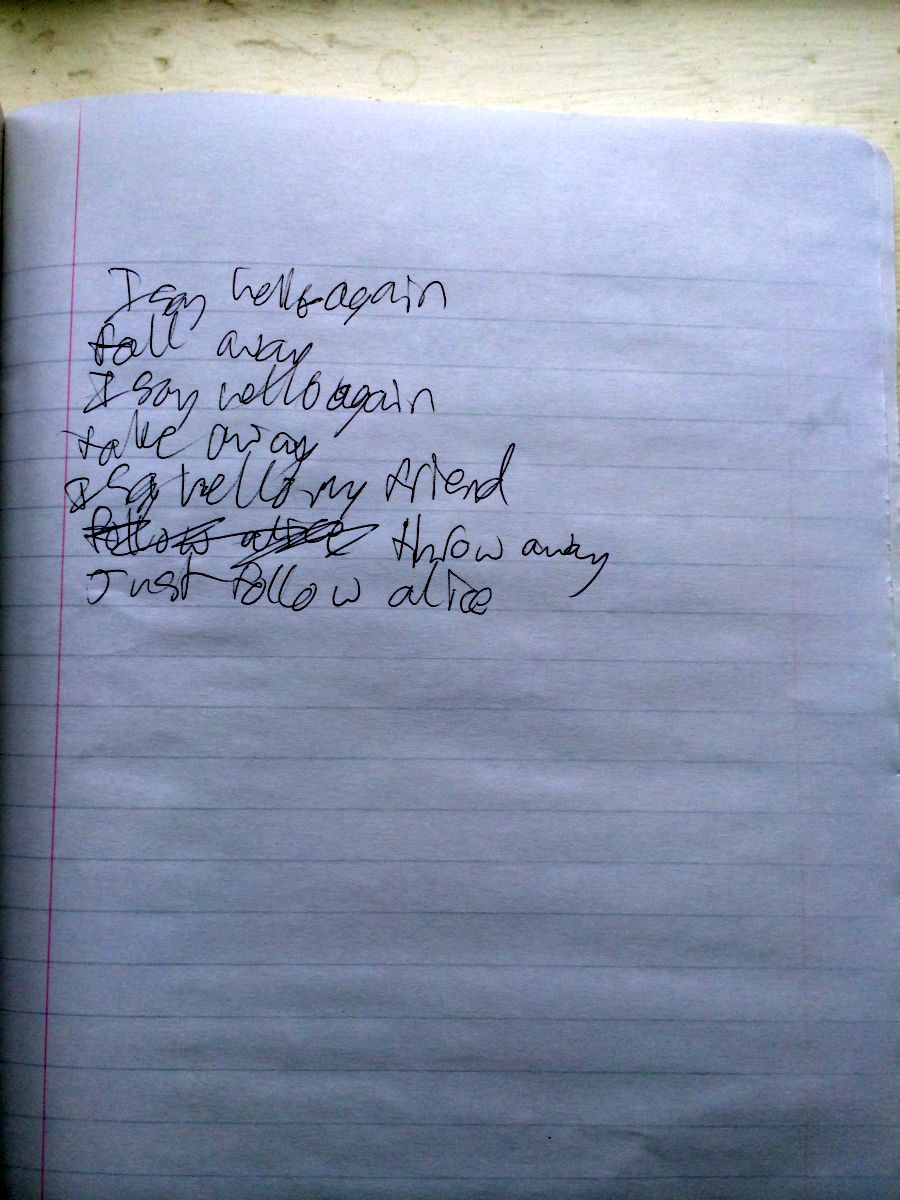 I say hello again
fall away
I say hello again
take away
I say hello my friend
follow alice throw away
Just follow alice